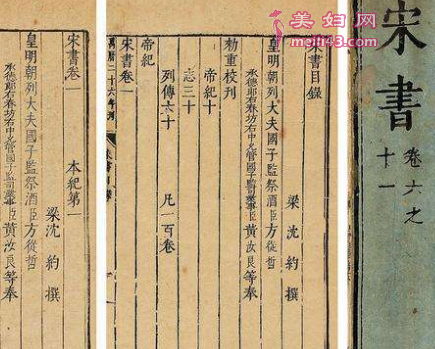 美妇网
宋書
卷六之
十一
宋書目錄
梁沈約撰
皇明朝列大夫國子監祭酒臣方從哲
承德郎右春坊右中允管國子監司業事臣黃汝良等奉
勅重校刊
帝紀十
志三十
列傳六十
凡一百卷
萬曆二十六年刊
帝紀
宋書卷一
宋書卷一 本紀第一
梁沈約撰
皇明朝列大夫國子監祭酒臣方從哲
承德郎右春坊右中允管國子監司業事臣黃汝良等奉